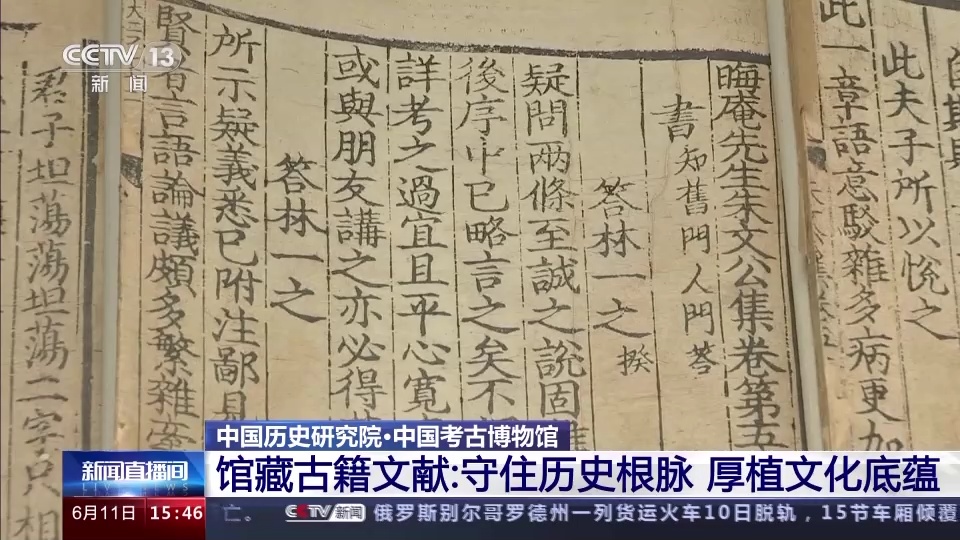 CCTV 13
新闻
此一章語意駁雜多病更加
此夫子所以悅之
晦庵先生朱文公集卷第五
書 知舊門人問荅
答林一之 揆
疑問兩條至誠之說固
後序中已略言之矣不
詳考之過宜且平心寬
或與朋友講之亦必得
答林一之
所示疑義悉已附注鄙見
賢者言語論議頗多繁雜
君子坦蕩蕩坦蕩二字只相
中国历史研究院·中国考古博物馆
新闻直播间
馆藏古籍文献:守住历史根脉 厚植文化底蕴
6月11日 15:46
亡。
CCTV新闻
俄罗斯别尔哥罗德州一列货运火车10日脱轨，15节车厢倾覆